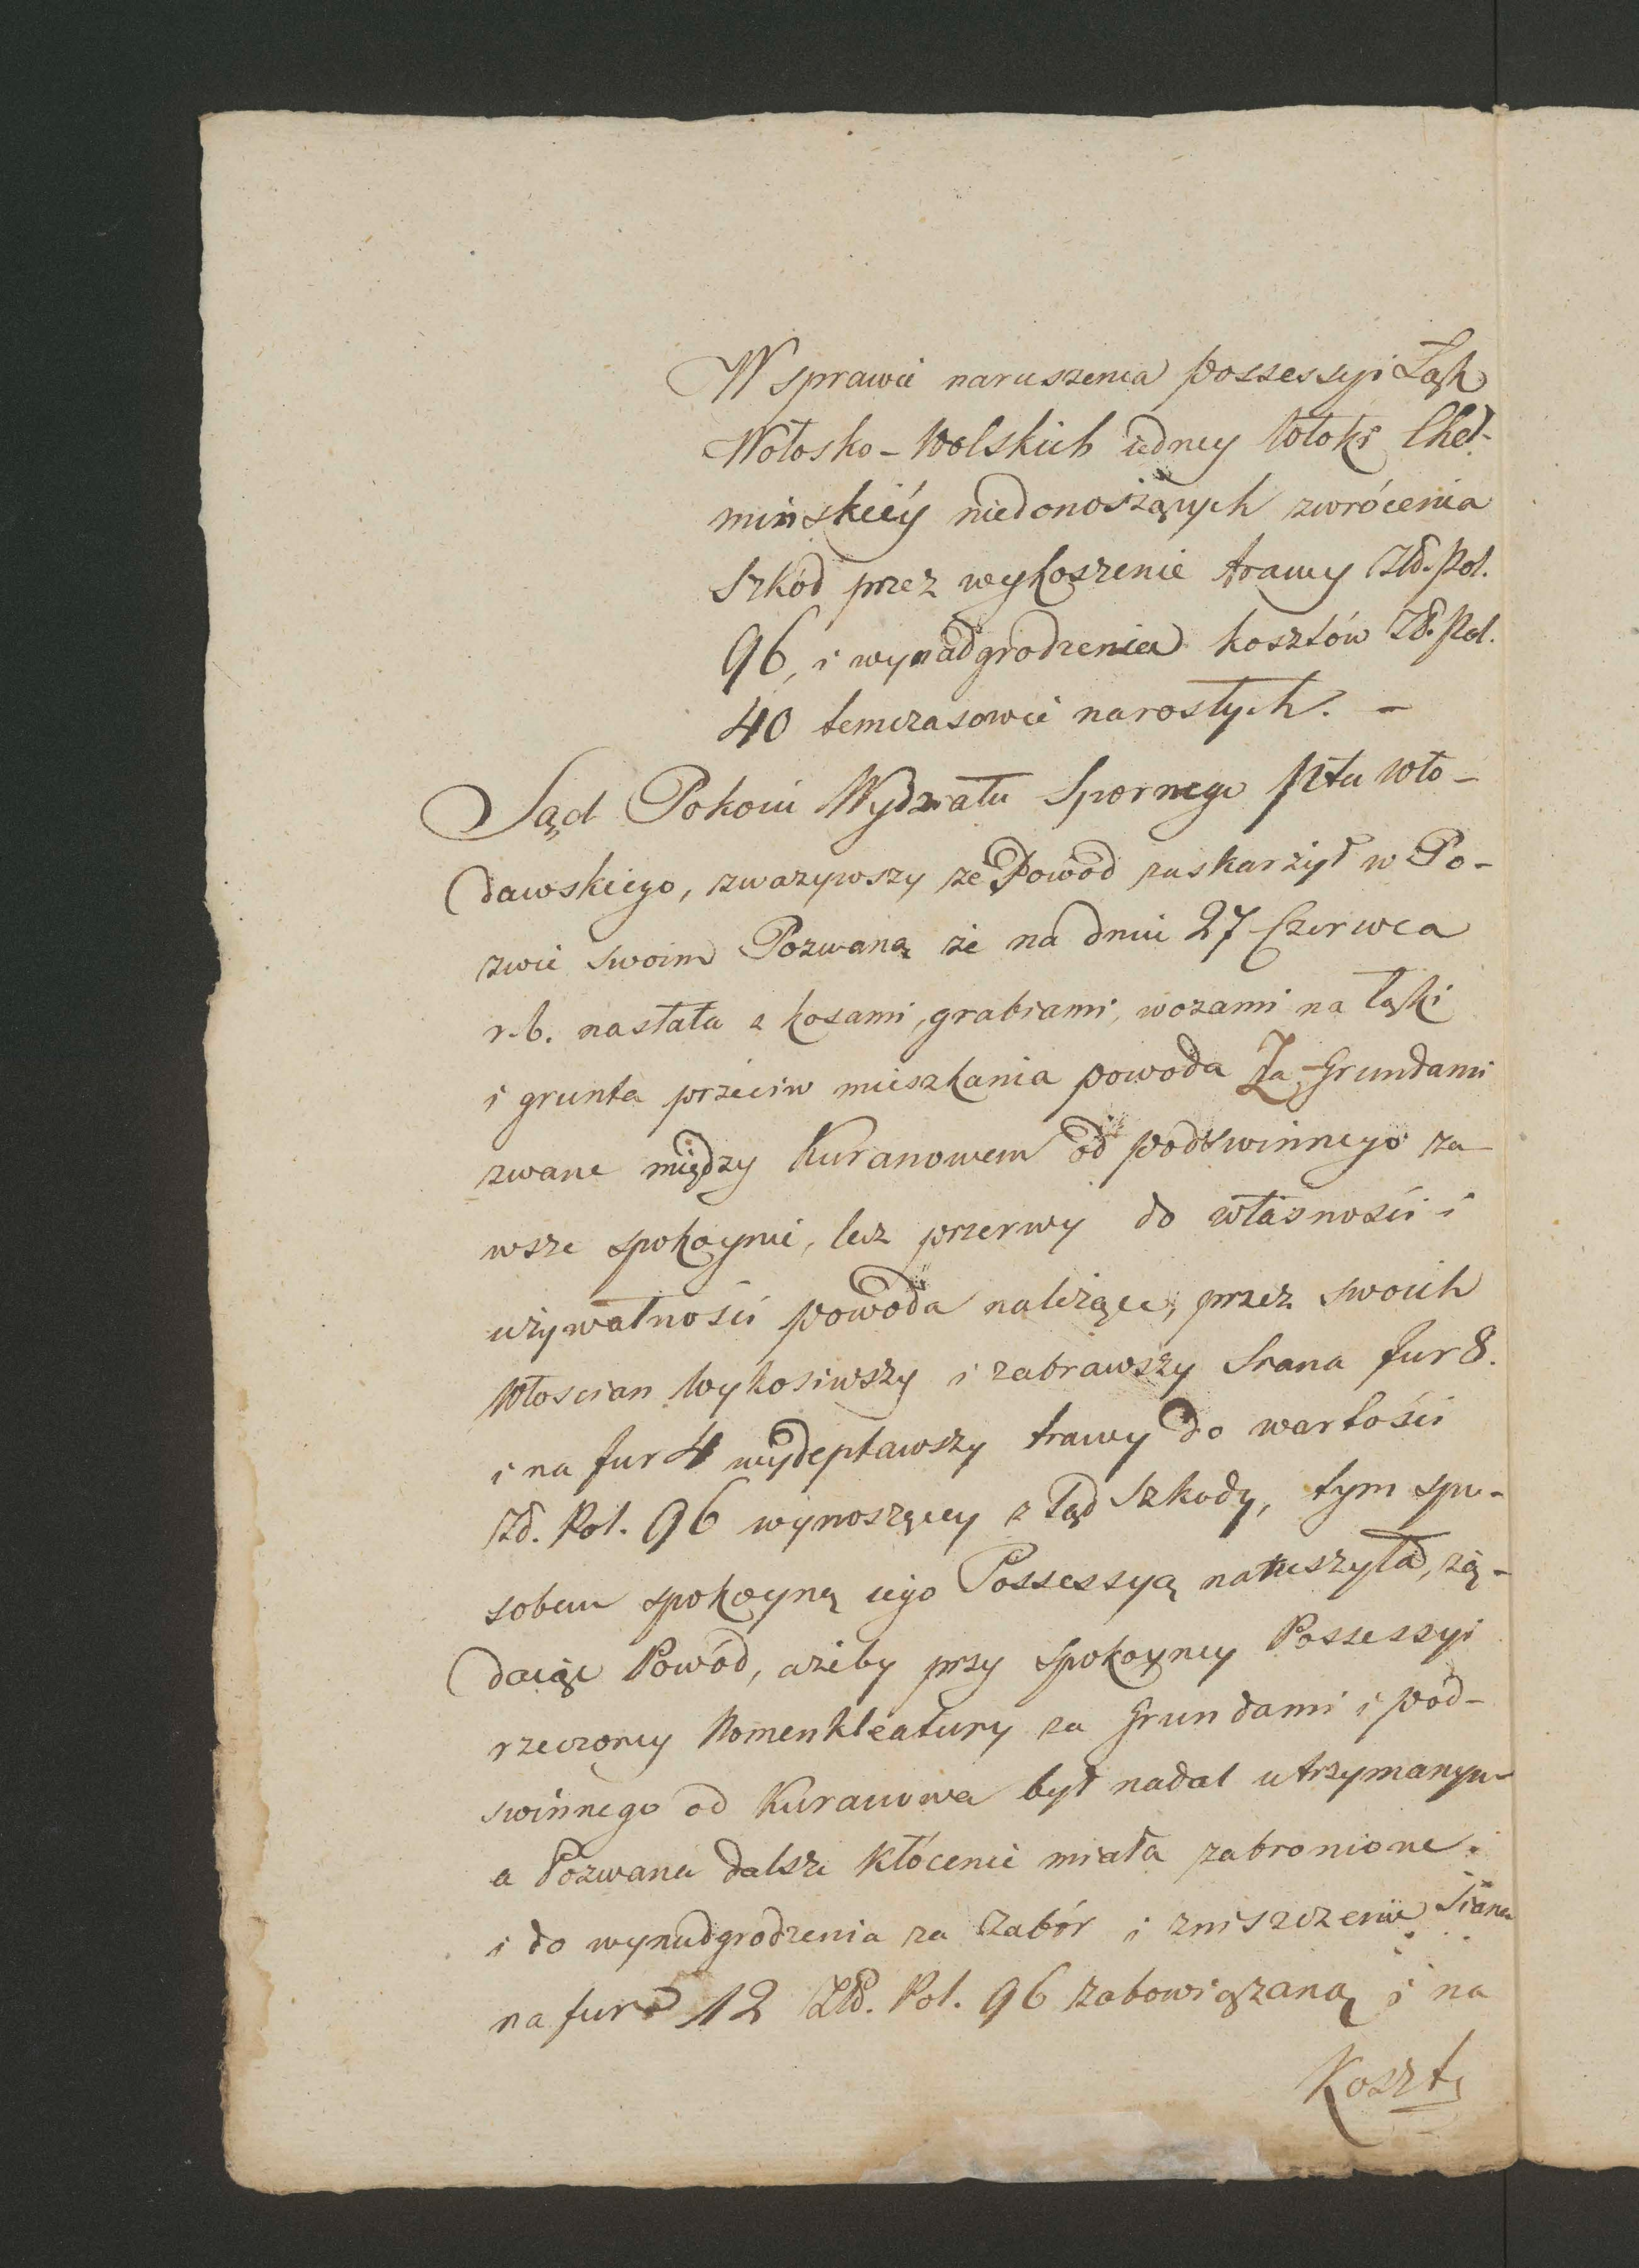 W sprawie naruszenia possessyi Łąk
Wołosko-Wolskich iedney Włoki Cheł-
minskiéy niedonoszących zwrócenia
Szkód przez wykoszenie trawy Złł. Pol.
96, i wynadgrodzenia kosztów Zł. Pol.
40 temczasowie narosłych. -
Sąd Pokoiu Wydziału Spornego Pttu Wło-
dawskiego, zwazywszy ze Powód zaskarżył w Po-
zwie swoim Pozwaną że na dniu 27 Czerwca
r. b. nasłała z kosami, grabiami, wozami na łąki
i grunta przeciw mieszkania powoda Za-Grundami
zwane między Kuranowem od podswinnego za-
wsze spokoynie, bez przerwy do własności i
używalności powoda należące, przez swoich
Włoscian Wykosiwszy i zabrawszy Siana fur 8.
i na fur 4 wydeptawszy trawy do wartości
Zł. Pol. 96 wynoszącey z tąd Szkody, tym spo-
sobem spokoyną iego Possessyą naruszyła, żą-
daiąc Powód, ażeby przy spokoyney Possessyi
rzeczoney Nomenkleatury za Grundami i pod-
swinnego od Kuranowa był nadal utrzymanym
a Pozwana dalsze kłócenie miała zabronione.
i do wynadgrodzenia za zabór i zniszczenie Siana
na fur 12 Złł. Pol. 96 zobowiązaną i na
Koszty